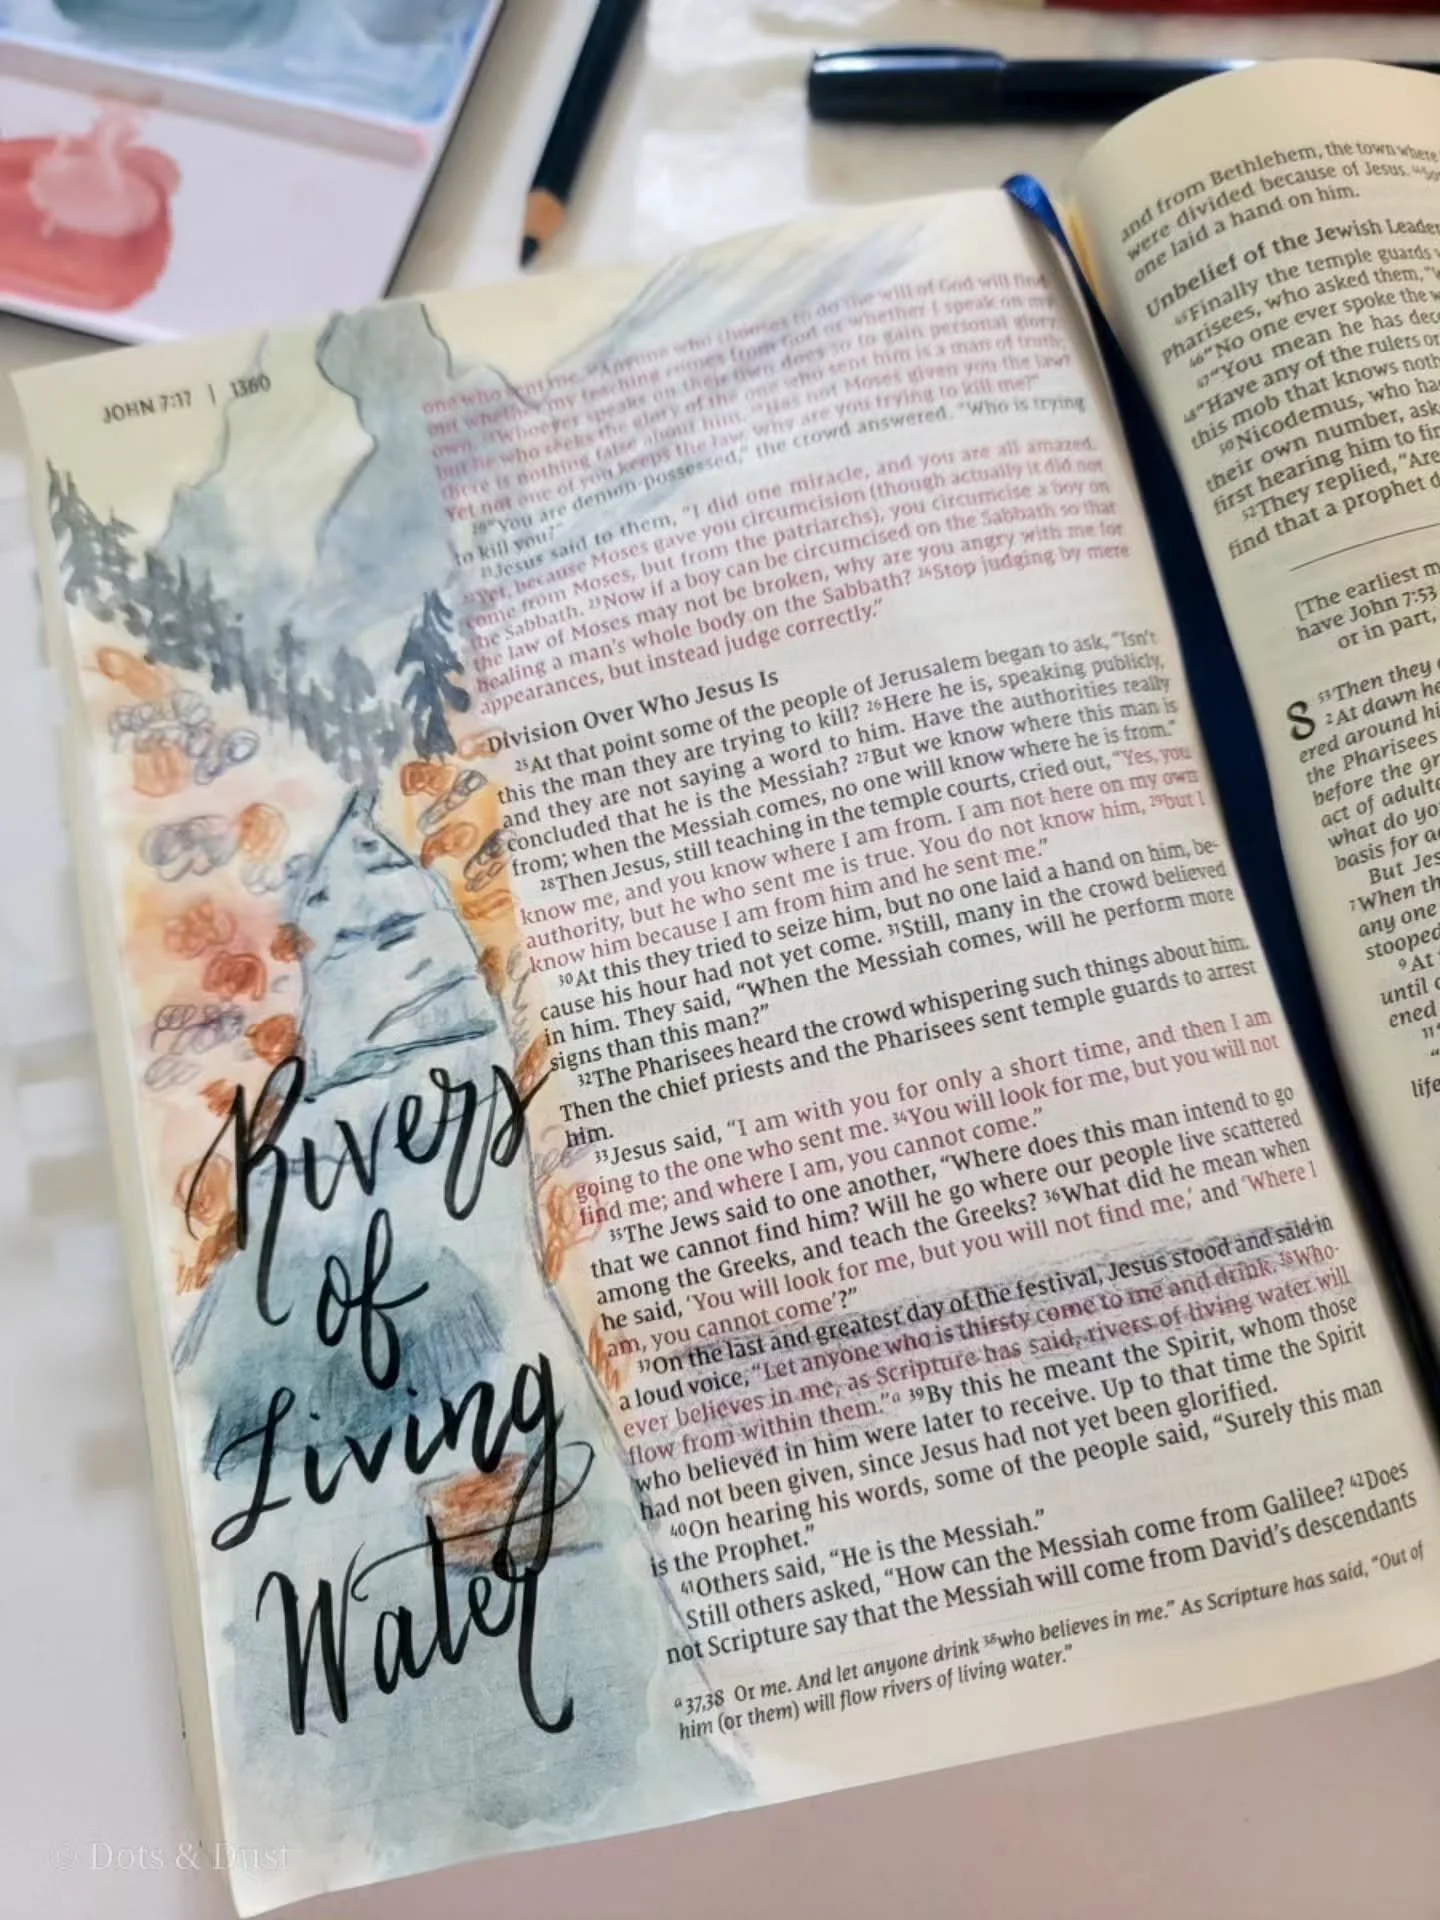 JOHN 7:17 | 1360
one who sent me. "Anyone who chooses to do the will of God will find
out whether my teaching comes from God or whether I speak on my
own. Whoever speaks on their own does so to gain personal glory,
but he who seeks the glory of the one who sent him is a man of truth;
there is nothing false about him. "Has not Moses given you the law?
Yet not one of you keeps the law. Why are you trying to kill me?"
20"You are demon-possessed," the crowd answered. "Who is trying
to kill you?"
21Jesus said to them, "I did one miracle, and you are all amazed.
22Yet, because Moses gave you circumcision (though actually it did not
come from Moses, but from the patriarchs), you circumcise a boy on
the Sabbath. 23Now if a boy can be circumcised on the Sabbath so that
the law of Moses may not be broken, why are you angry with me for
healing a man's whole body on the Sabbath? 24Stop judging by mere
appearances, but instead judge correctly."
Division Over Who Jesus Is
25At that point some of the people of Jerusalem began to ask, "Isn't
this the man they are trying to kill? 26Here he is, speaking publicly,
and they are not saying a word to him. Have the authorities really
concluded that he is the Messiah? 27But we know where this man is
from; when the Messiah comes, no one will know where he is from."
28Then Jesus, still teaching in the temple courts, cried out, "Yes, you
know me, and you know where I am from. I am not here on my own
authority, but he who sent me is true. You do not know him, 29but I
know him because I am from him and he sent me."
30At this they tried to seize him, but no one laid a hand on him, be-
cause his hour had not yet come. 31Still, many in the crowd believed
in him. They said, "When the Messiah comes, will he perform more
signs than this man?"
32The Pharisees heard the crowd whispering such things about him.
Then the chief priests and the Pharisees sent temple guards to arrest
him.
33Jesus said, "I am with you for only a short time, and then I am
going to the one who sent me. 34You will look for me, but you will not
find me; and where I am, you cannot come."
35The Jews said to one another, "Where does this man intend to go
that we cannot find him? Will he go where our people live scattered
among the Greeks, and teach the Greeks? 36What did he mean when
he said, 'You will look for me, but you will not find me,' and 'Where I
am, you cannot come'?"
37On the last and greatest day of the festival, Jesus stood and said in
a loud voice, "Let anyone who is thirsty come to me and drink. 38Who-
ever believes in me, as Scripture has said, rivers of living water will
flow from within them."a 39By this he meant the Spirit, whom those
who believed in him were later to receive. Up to that time the Spirit
had not been given, since Jesus had not yet been glorified.
40On hearing his words, some of the people said, "Surely this man
is the Prophet."
41Others said, "He is the Messiah."
Still others asked, "How can the Messiah come from Galilee? 42Does
not Scripture say that the Messiah will come from David's descendants
a 37,38 Or me. And let anyone drink 38who believes in me." As Scripture has said, "Out of
him (or them) will flow rivers of living water."
Rivers
of
Living
Water
and from Bethlehem, the town where
were divided because of Jesus.
one laid a hand on him.
Unbelief of the Jewish Leader
45Finally the temple guards
Pharisees, who asked them,
46"No one ever spoke the
47"You mean he has dec
48"Have any of the rulers or
this mob that knows noth
50Nicodemus, who ha
their own number, ask
first hearing him to fin
52They replied, "Are
find that a prophet d
[The earliest m
have John 7:53
or in part,
53Then they
S 2At dawn he
ered around hi
the Pharisees
before the gr
act of adulte
what do yo
basis for a
But Jes
7When th
any one
stooped
9At
until
ened
11
life
© Dots & Dust